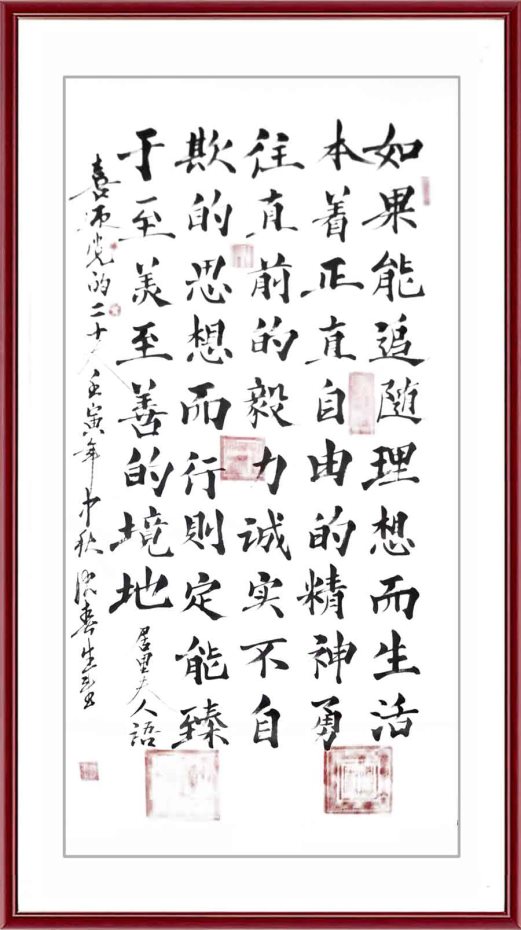 如果能追随理想而生活
本着正直自由的精神勇
往直前的毅力诚实不自
欺的思想而行則定能臻
于至美至善的境地
居里夫人語
喜迎党的二十大壬寅年中秋春生書